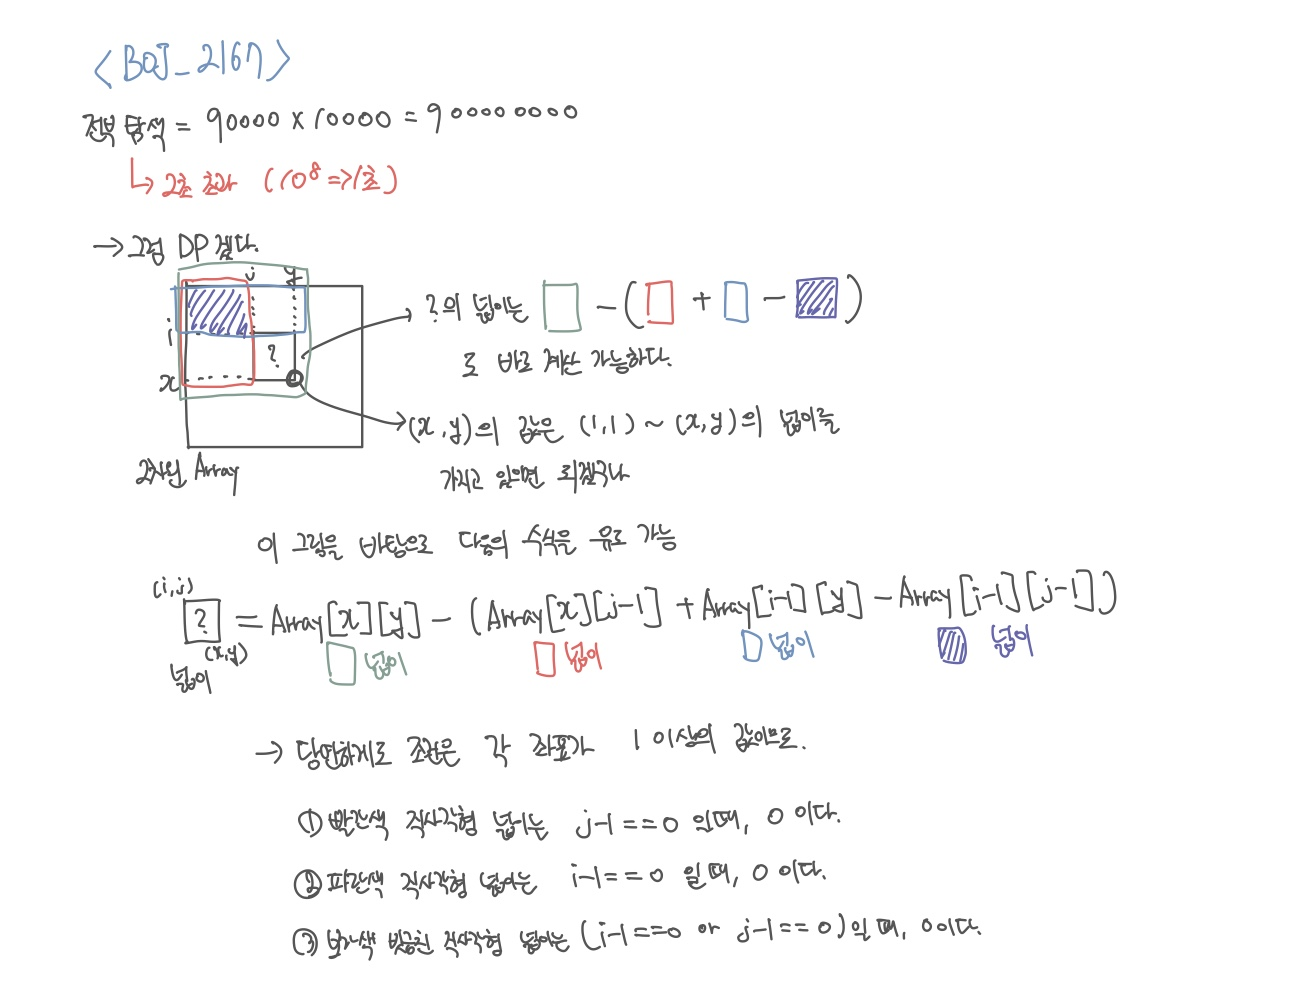 <BOJ_2167>
전부 탐색 = 90000 x 10000 = 900000000
↳ 2초 초과 (10^8 => 1초)
→ 그럼 DP 겠다.
j y
i
?
x
2차원 Array
?의 넓이는 □ - (□ + □ - □)
로 바로 계산 가능하다.
(x,y)의 값은 (1,1) ~ (x,y)의 넓이를
가지고 있으면 되겠구나
이 그림을 바탕으로 다음의 수식은 유도 가능
(i,j)
? = Array[x][y] - (Array[x][j-1] + Array[i-1][y] - Array[i-1][j-1])
(x,y)
넓이
□ 넓이 □ 넓이 □ 넓이 □ 넓이
→ 당연하게도 조건은 각 좌표가 1 이상의 값이므로.
① 빨간색 직사각형 넓이는 j-1==0 일때, 0 이다.
② 파란색 직사각형 넓이는 i-1==0 일때, 0 이다.
③ 보라색 빗금친 직사각형 넓이는 (i-1==0 or j-1==0)일때, 0이다.